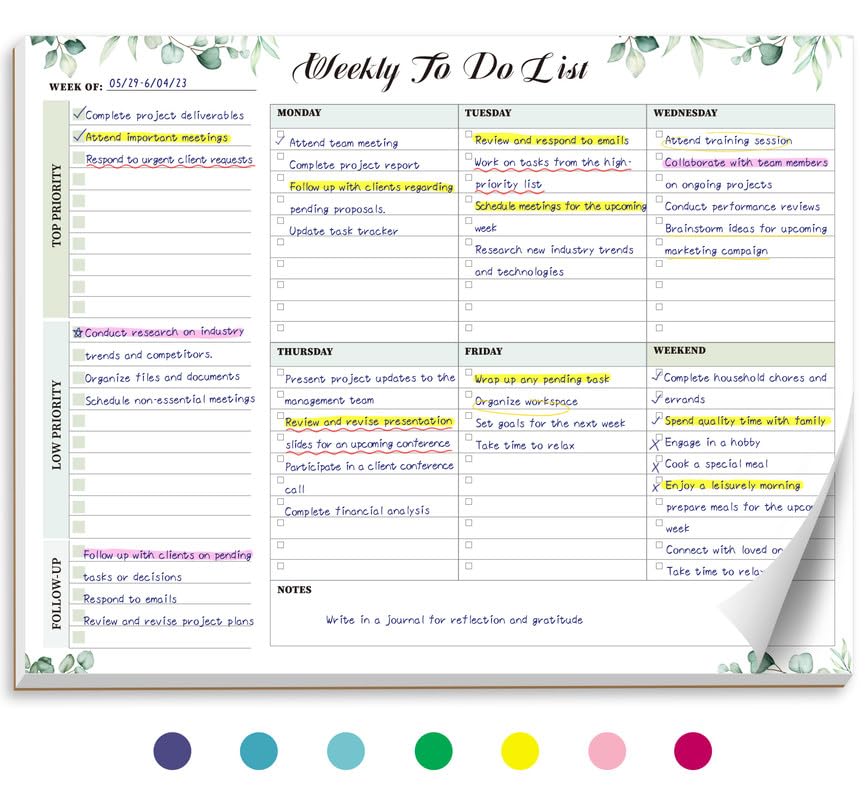 Weekly To Do List
WEEK OF: 05/29-6/04/23
TOP PRIORITY
Complete project deliverables
Attend important meetings
Respond to urgent client requests
LOW PRIORITY
Conduct research on industry
trends and competitors.
Organize files and documents
Schedule non-essential meetings
FOLLOW-UP
Follow up with clients on pending
tasks or decisions
Respond to emails
Review and revise project plans
MONDAY
Attend team meeting
Complete project report
Follow up with clients regarding
pending proposals.
Update task tracker
TUESDAY
Review and respond to emails
Work on tasks from the high-
priority list
Schedule meetings for the upcoming
week
Research new industry trends
and technologies
WEDNESDAY
Attend training session
Collaborate with team members
on ongoing projects
Conduct performance reviews
Brainstorm ideas for upcoming
marketing campaign
THURSDAY
Present project updates to the
management team
Review and revise presentation
slides for an upcoming conference
Participate in a client conference
call
Complete financial analysis
FRIDAY
Wrap up any pending task
Organize workspace
Set goals for the next week
Take time to relax
WEEKEND
Complete household chores and
errands
Spend quality time with family
Engage in a hobby
Cook a special meal
Enjoy a leisurely morning
prepare meals for the
week
Connect with loved
Take time to relax
NOTES
Write in a journal for reflection and gratitude